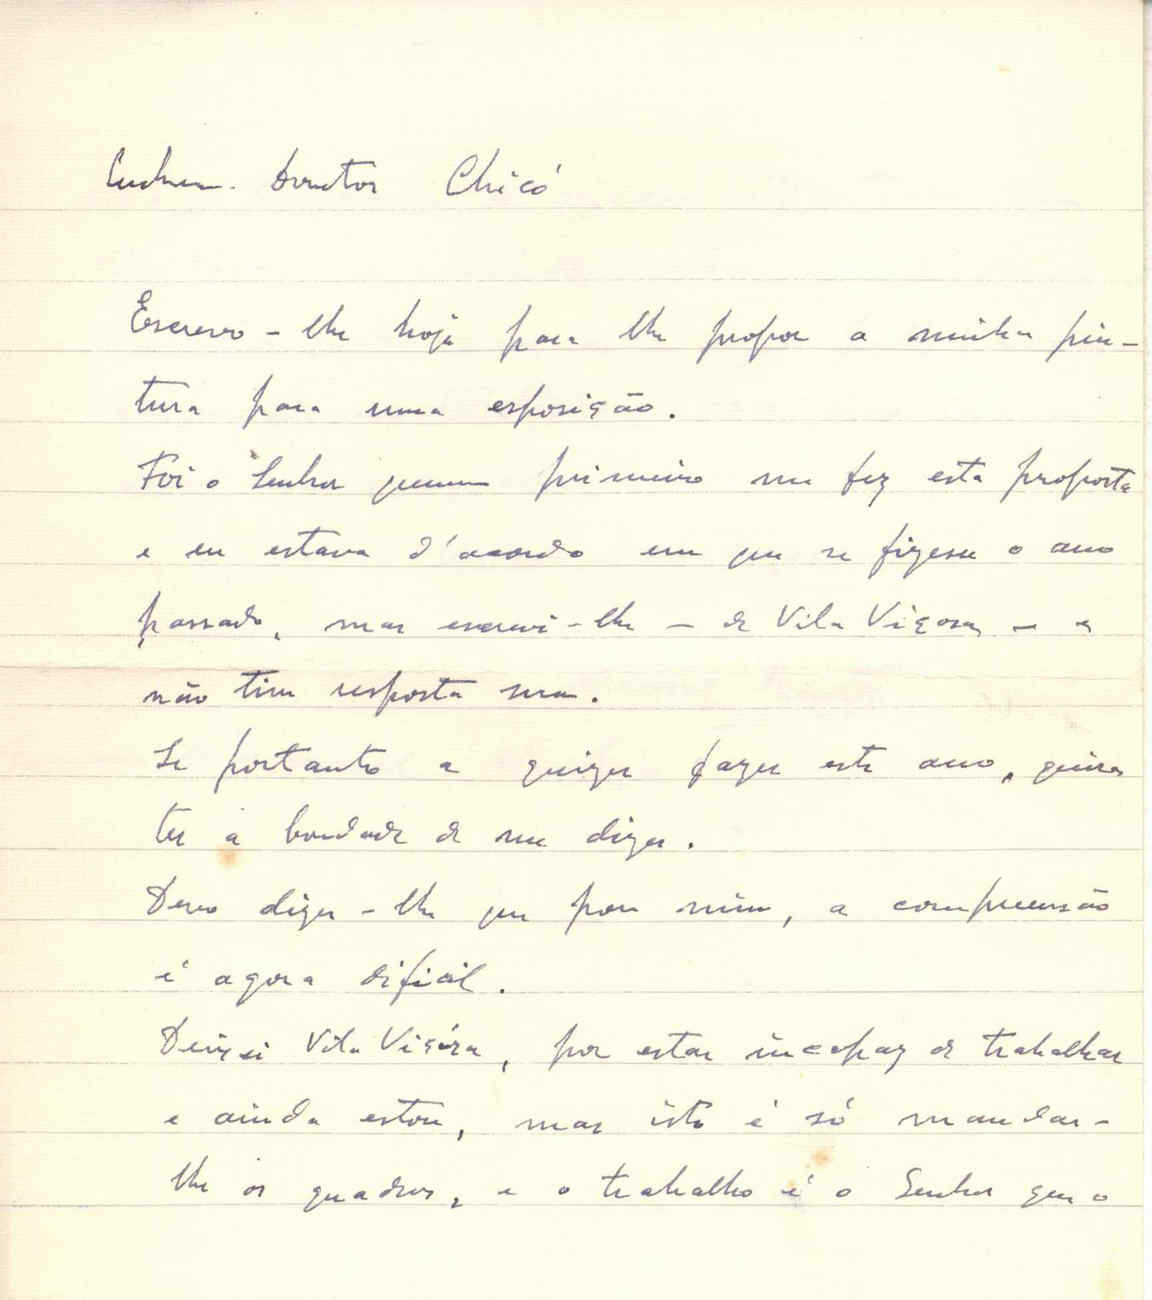 Doutor Chicó
Escrevo-lhe hoje para lhe propor a minha pin-
tura para uma esposição.
Foi o Senhor quem primeiro me fez esta proposta
e eu estava d'acordo em que se fizesse o ano
passado, mas escrevi-lhe - de Vila Viçosa - e
não tive resposta sua.
Se portanto a quizer fazer este ano, queira
ter a bondade de me dizer.
Devo dizer-lhe que para mim, a compreensão
é agora dificil.
Deixei Vila Viçósa, por estar incapaz de trabalhar
e ainda estou, mas isto é só mandar-
lhe os quadros, e o trabalho é o Senhor que o